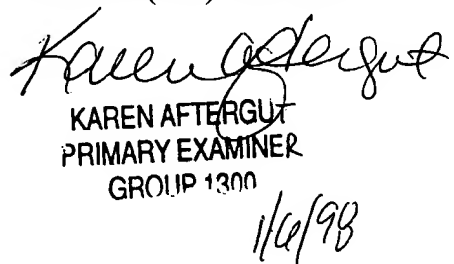 Karen Aftergut
KAREN AFTERGUT
PRIMARY EXAMINER
GROUP 1300
1/6/98